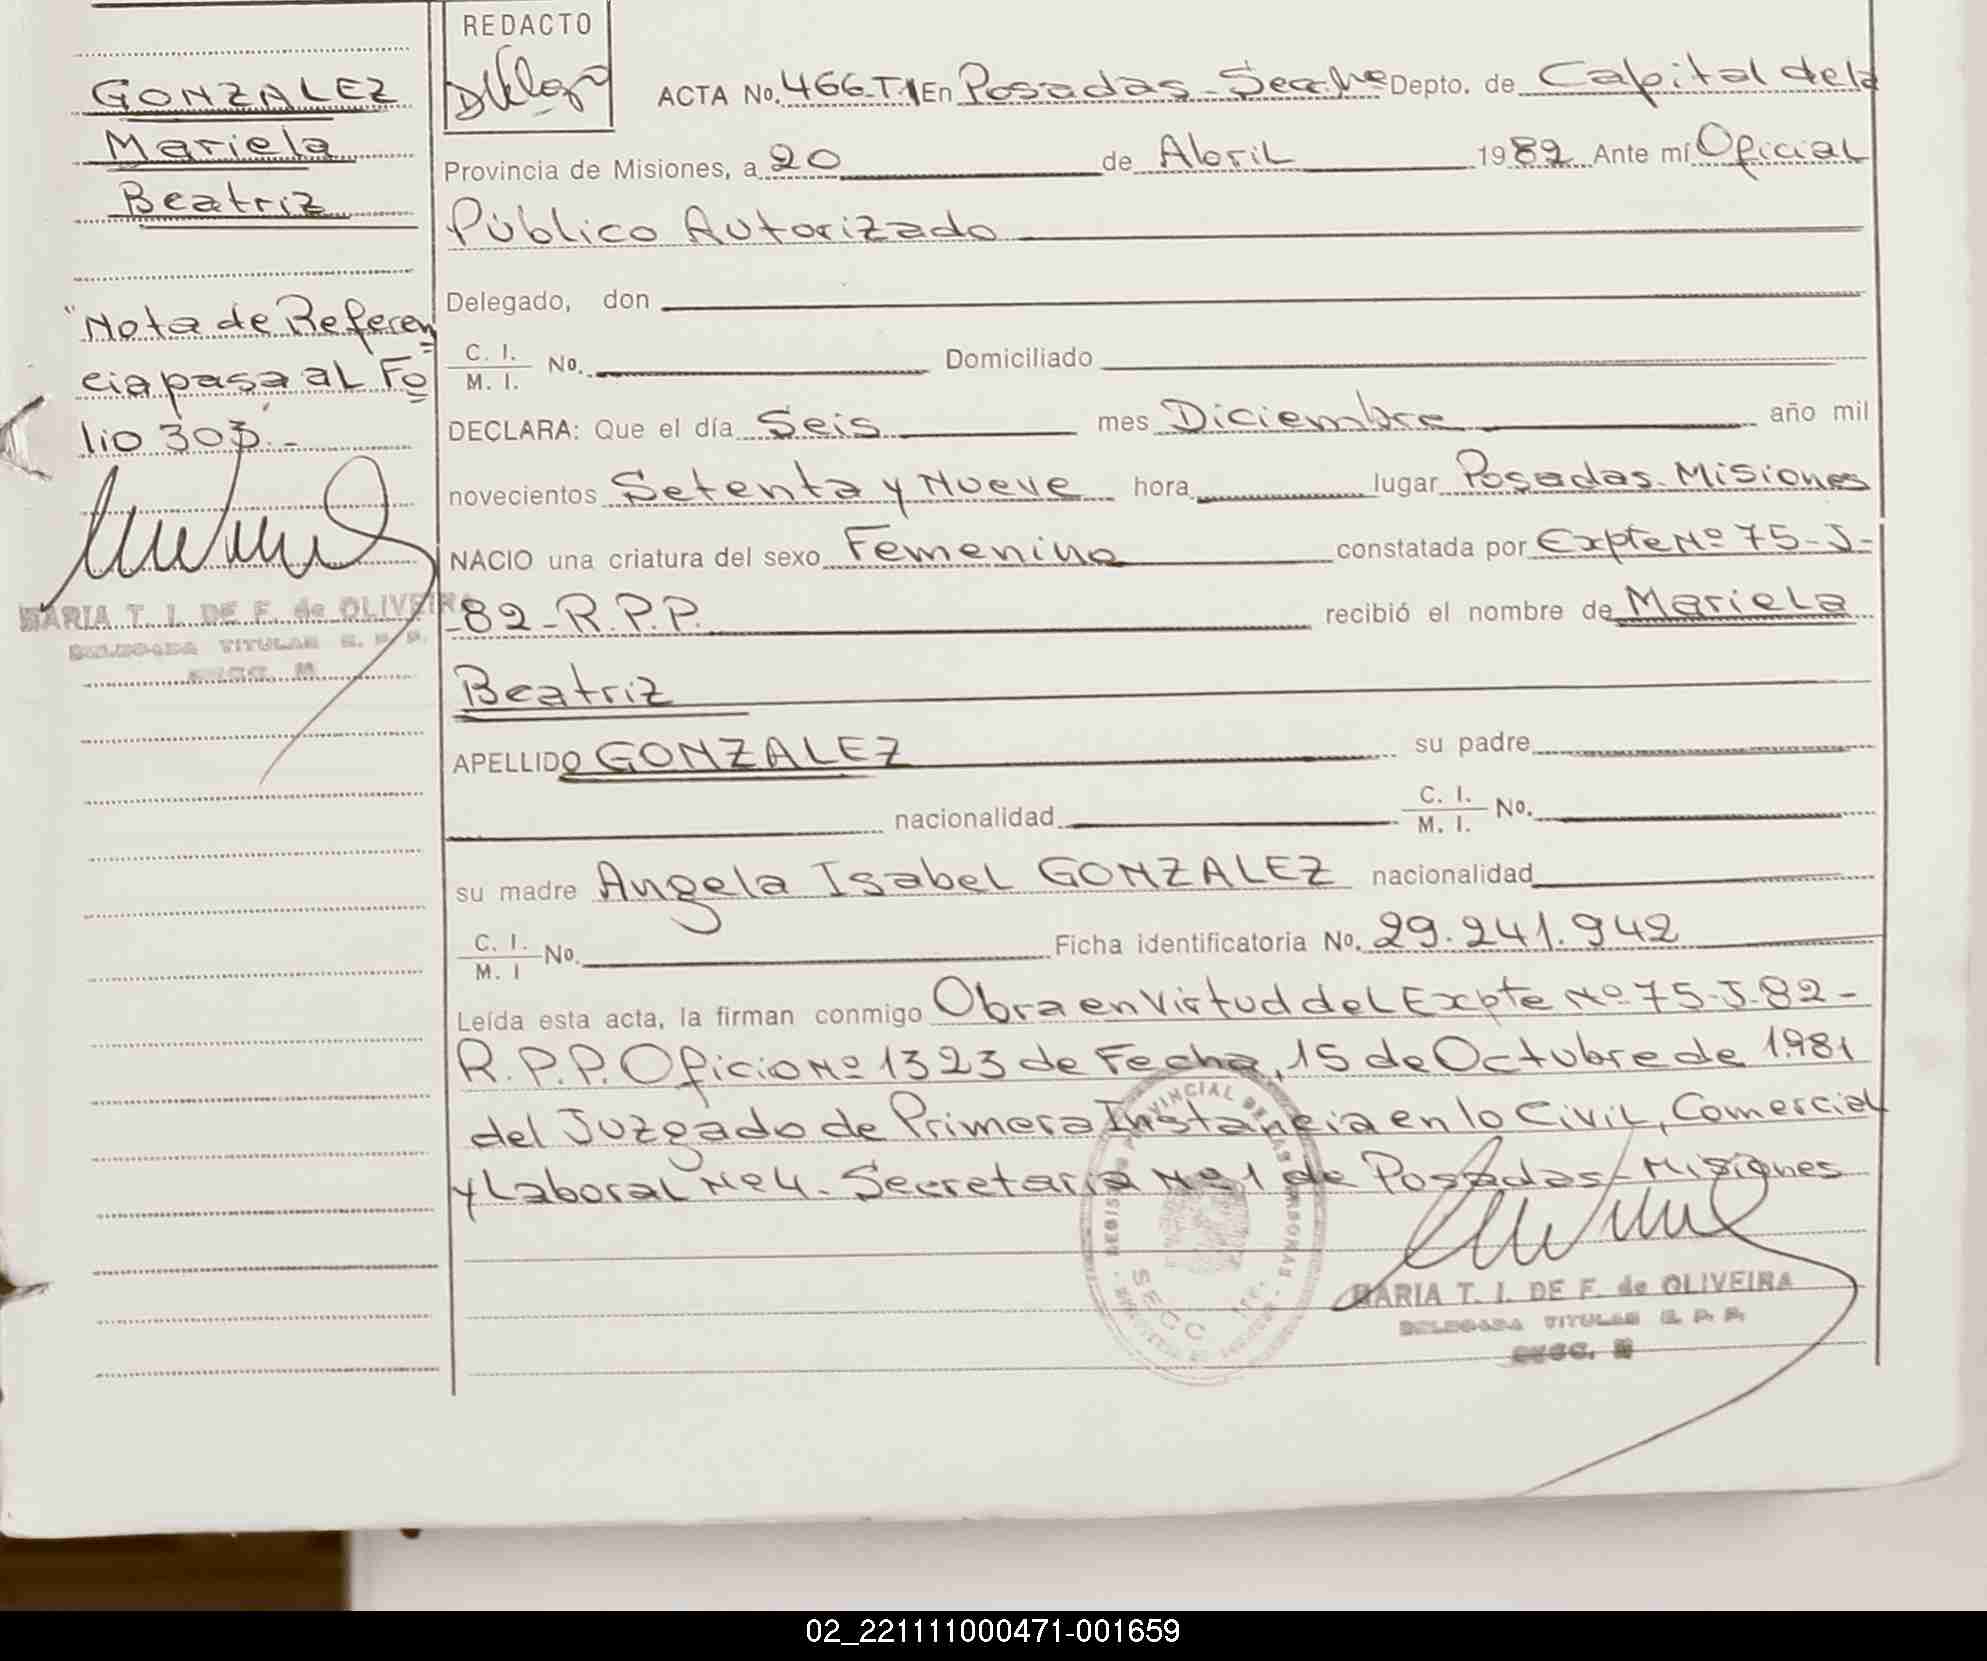 REDACTO
GONZALEZ
Mariela
Beatriz
"Nota de Referen
cia pasa al Fo
lio 303.-
MARIA T. I. DE F. de OLIVEIRA
DELEGADA TITULAR R. P. P.
SECC.
ACTA No. 466-T1 En Posadas - Depto. de Capital de la
Provincia de Misiones, a 20 de Abril 1982 Ante mí Oficial
Público Autorizado
Delegado, don
C. I.
M. I. No. Domiciliado
DECLARA: Que el día Seis mes Diciembre año mil
novecientos Setenta y Nueve hora lugar Posadas. Misiones
NACIO una criatura del sexo Femenino constatada por Expte Nº 75-J-
-82-R.P.P. recibió el nombre de Mariela
Beatriz
APELLIDO GONZALEZ su padre
nacionalidad C. I.
M. I. No.
su madre Angela Isabel GONZALEZ nacionalidad
C. I.
M. I No. Ficha identificatoria No. 29.241.942
Leída esta acta, la firman conmigo Obra en Virtud del Expte Nº 75-J-82-
R.P.P. Oficio Nº 1323 de Fecha, 15 de Octubre de 1981
del Juzgado de Primera Instancia en lo Civil, Comercial
y Laboral Nº 4. Secretaria Nº 1 de Posadas - Misiones
MARIA T. I. DE F. de OLIVEIRA
DELEGADA TITULAR R. P. P.
SECC.
02_221111000471-001659